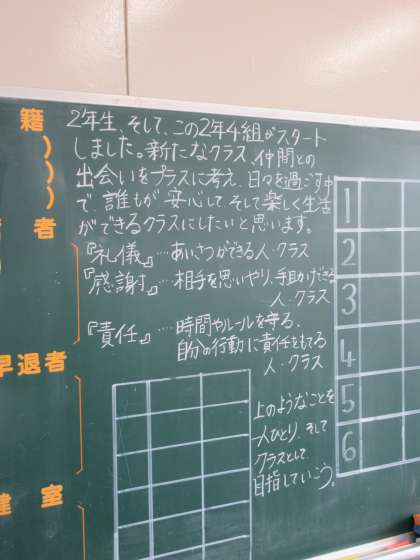 2年生、そして、この2年4組がスタート
しました。新たなクラス、仲間との
出会いをプラスに考え、日々を過ごす中
で、誰もが安心して そして楽しく生活
ができるクラスにしたいと思います。
『礼儀』…あいさつができる人・クラス
『感謝』…相手を思いやり、手助けできる
人・クラス
『責任』…時間やルールを守る、
自分の行動に責任をもてる
人・クラス
上のようなことを
一人ひとり、そして
クラスとして
目指していこう。
籍
者
早退者
室
1
2
3
4
5
6